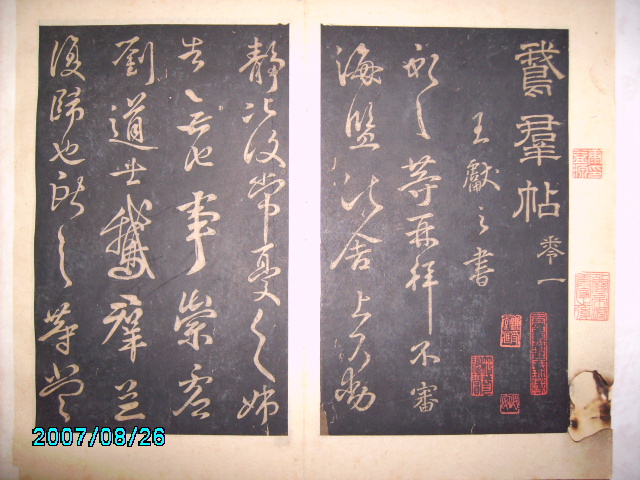 鵞羣帖 卷一
王獻之書
獻之等再拜不審
海鹽諸舍上下動
靜比復常憂之姊
告無他事崇虛
劉道士鵞群並
復歸也獻之等當
2007/08/26